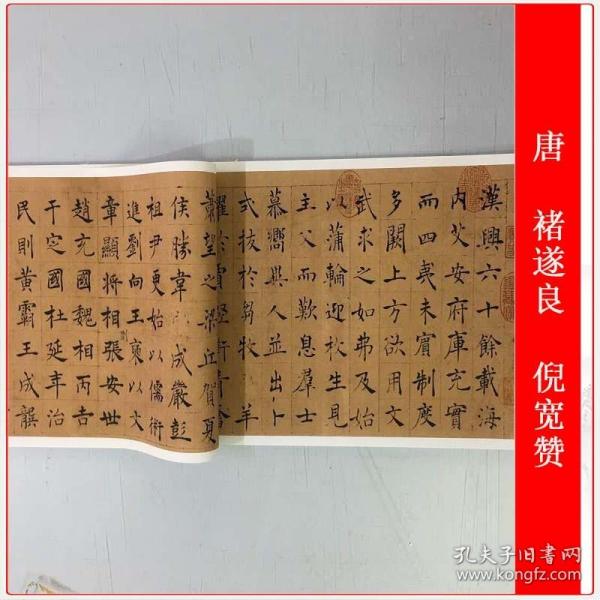 漢興六十餘載海
内艾安府庫充實
而四夷未賓制度
多闕上方欲用文
武求之如弗及始
以蒲輪迎枚生見
主父而歎息羣士
慕嚮異人並出卜
式拔於芻牧 羊
擢於賈
蕭望之梁丘賀夏
侯勝韋 成嚴彭
祖尹更始以儒術
進劉向王襃以文
章顯將相張安世
趙充國魏相丙吉
于定國杜延年治
民則黃霸王成龔
唐 褚遂良 倪宽赞
孔夫子旧书网
www.kongfz.com